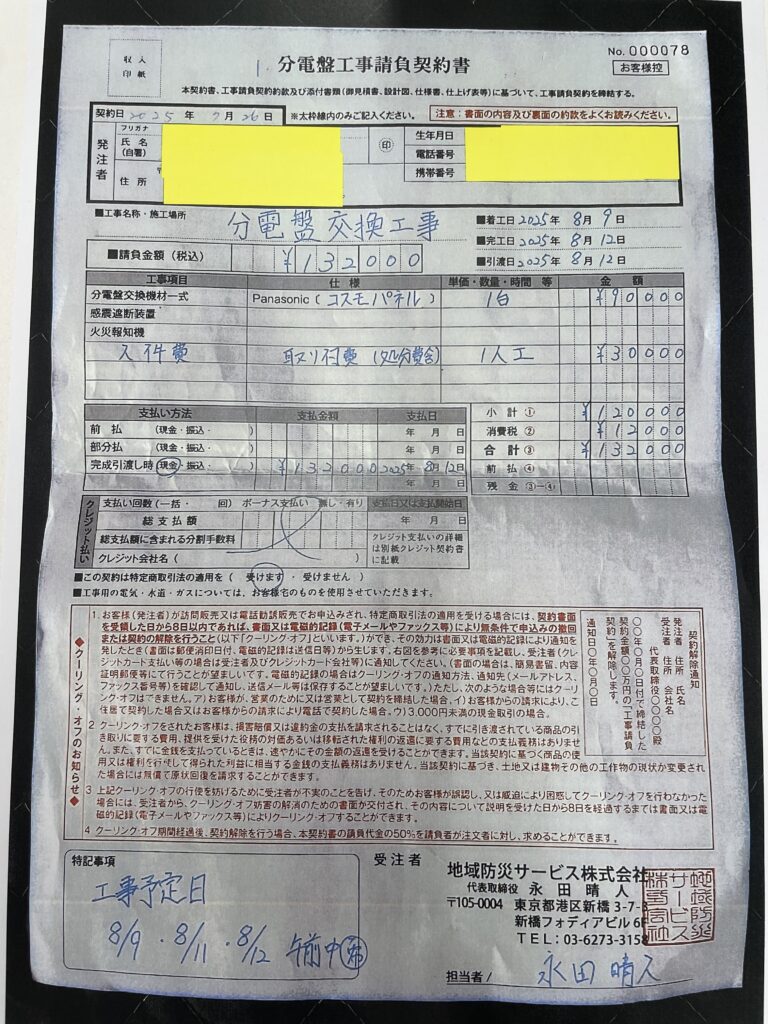 収入
印紙
分電盤工事請負契約書
No. 000078
お客様控
本契約書、工事請負契約約款及び添付書類(御見積書、設計図、仕様書、仕上げ表等)に基づいて、工事請負契約を締結する。
契約日 2025年 7月26日
※太枠線内のみご記入ください。
注意：書面の内容及び裏面の約款をよくお読みください。
発注者
フリガナ
氏名
(自署)
印
住所
〒
生年月日
電話番号
携帯番号
■工事名称・施工場所
分電盤交換工事
■着工日 2025年 8月 9日
■完工日 2025年 8月 12日
■引渡日 2025年 8月 12日
■請負金額（税込） ¥132000
工事項目 仕様 単価・数量・時間 等 金額
分電盤交換機材一式 Panasonic（コスモパネル） 1台 ¥90000
感震遮断装置
火災報知機
人件費 取り付費（処分費含） 1人工 ¥30000
支払い方法 支払金額 支払日
前払 (現金・振込・ ) 年 月 日
部分払 (現金・振込・ ) 年 月 日
完成引渡し時 (現金・振込・ ) ¥132000 2025年 8月12日
年 月 日
小計① ¥120000
消費税② ¥12000
合計③ ¥132000
前払④
残金③-④
クレジット払い
支払い回数 (一括・ 回) ボーナス支払い 無し・有り 支払日又は支払開始日
総支払額 年 月 日
総支払額に含まれる分割手数料
クレジット支払いの詳細は別紙クレジット契約書に記載
クレジット会社名 ( )
■この契約は特定商取引法の適用を ( 受けます ・ 受けません )
■工事用の電気・水道・ガスについては、お客様宅のものを使用させていただきます。
◆クーリング・オフのお知らせ◆
1. お客様(発注者)が訪問販売又は電話勧誘販売でお申込みされ、特定商取引法の適用を受ける場合には、契約書面
を受領した日から8日以内であれば、書面又は電磁的記録(電子メールやファックス等)により無条件で申込みの撤回
または契約の解除を行うこと(以下「クーリング・オフ」といいます。)ができ、その効力は書面又は電磁的記録により通知を
発したとき(書面は郵便消印日付、電磁的記録は送信日等)から生じます。右図を参考に必要事項を記載し、受注者(クレ
ジットカード支払い等の場合は受注者及びクレジットカード会社等)に通知してください。(書面の場合は、簡易書留、内容
証明郵便等にて行うことが望ましいです。電磁的記録の場合はクーリング・オフの通知方法、通知先(メールアドレス、
ファックス番号等)を確認して通知し、送信メール等は保存することが望ましいです。)ただし、次のような場合等にはクーリ
ング・オフはできません。ア)お客様が、営業のために又は営業として契約を締結した場合、イ)お客様からの請求により、ご
住居で契約した場合又はお客様からの請求により電話で契約した場合、ウ)3,000円未満の現金取引の場合。
2 クーリング・オフをされたお客様は、損害賠償又は違約金の支払を請求されることはなく、すでに引き渡されている商品の引
き取りに要する費用、提供を受けた役務の対価あるいは移転された権利の返還に要する費用などの支払義務はありませ
ん。また、すでに金銭を支払っているときは、速やかにその金額の返還を受けることができます。当該契約に基づく商品の使
用又は権利を行使して得られた利益に相当する金銭の支払義務はありません。当該契約に基づき、土地又は建物その他の工作物の現状が変更さ
れた場合には無償で原状回復を請求することができます。
3 上記クーリング・オフの行使を妨げるために受注者が不実のことを告げ、そのためお客様が誤認し、又は威迫により困惑してクーリング・オフを行わなかった
場合には、受注者から、クーリング・オフ妨害の解消のための書面が交付され、その内容について説明を受けた日から8日を経過するまでは書面又は電
磁的記録(電子メールやファックス等)によりクーリング・オフすることができます。
4 クーリング・オフ期間経過後、契約解除を行う場合、本契約書の請負代金の50%を請負者が注文者に対し、求めることができます。
契約解除通知
発注者 住所 氏名
受注者 住所 会社名
代表取締役〇〇〇〇殿
〇〇年〇月〇日付で締結した
契約金額〇〇万円の「工事請負
契約」を解除します。
通知日〇〇年〇月〇日
特記事項
工事予定日
8/9・8/11・8/12 午前中希
受注者
地域防災サービス株式会社
代表取締役 永田晴人
〒105-0004 東京都港区新橋 3-7-3
新橋フォディアビル 6F
TEL：03-6273-3158
地域防災サービス株式会社
担当者/ 永田晴人